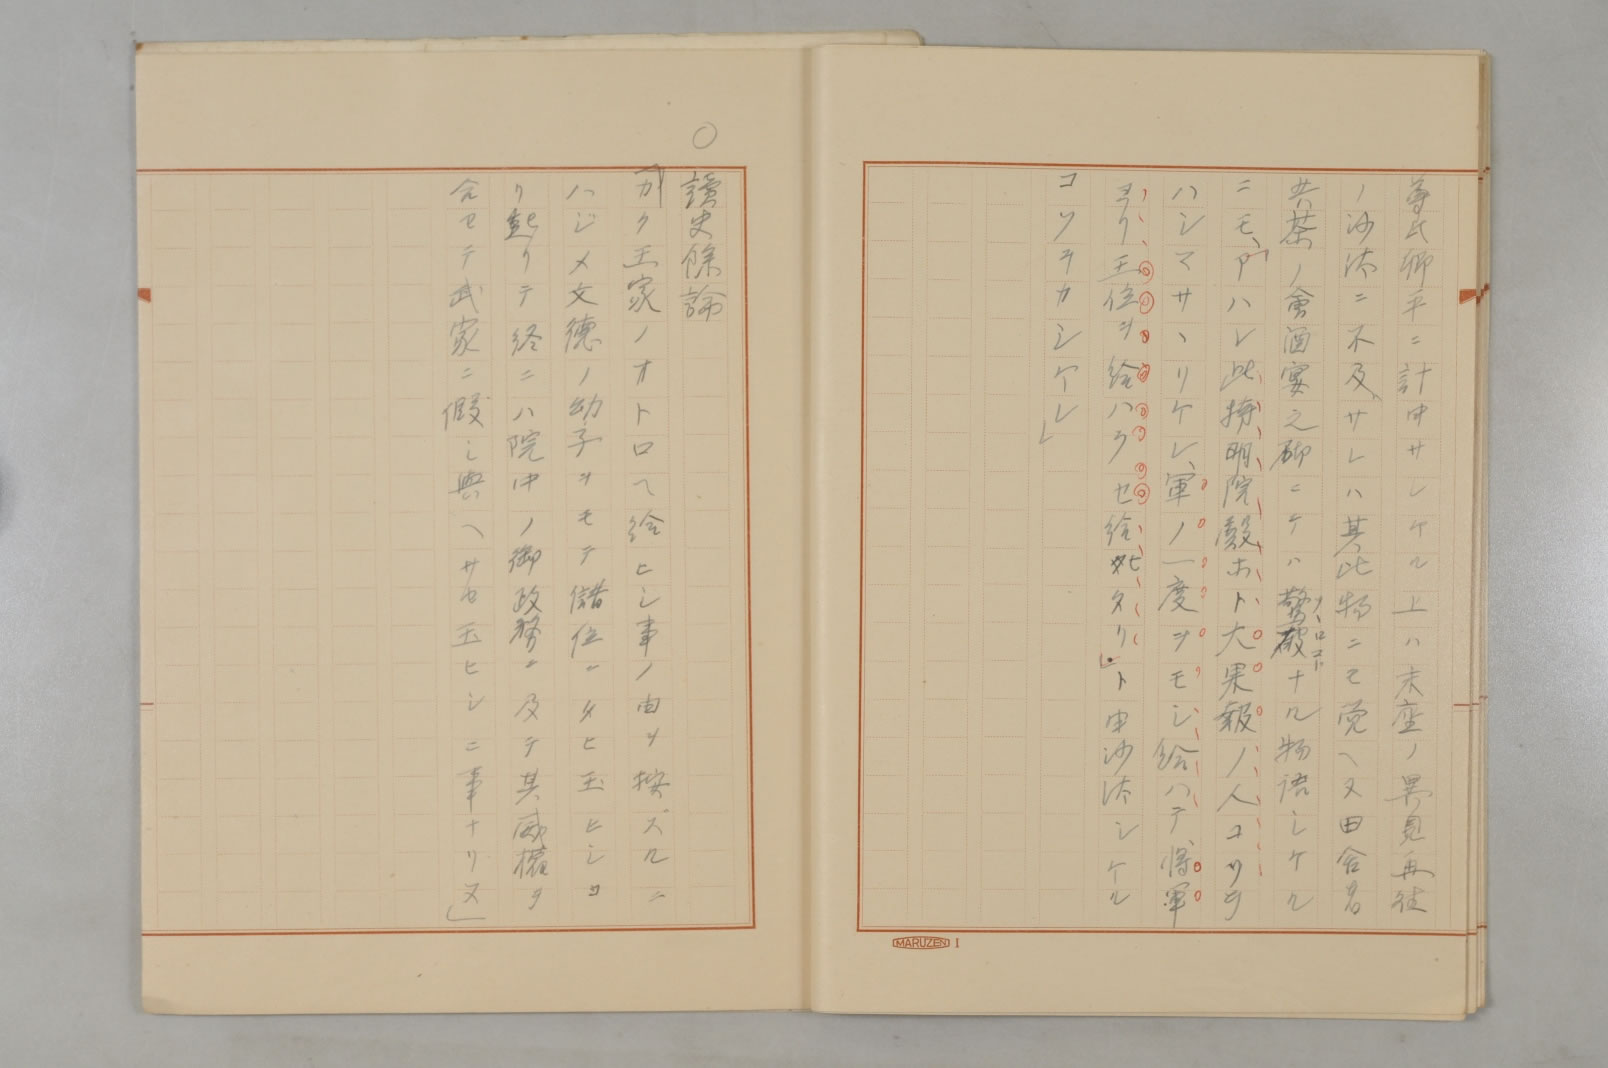 尊氏卿平ニ計申サレケル上ハ末座ノ異見再往
ノ沙汰ニ不及、サレハ其比物ニモ覚ヘヌ田舎者
共茶ノ會酒宴之砌ニテハ鷔破ナル物語シケル
ニモ、「アハレ此持明院殿ホト大果報ノ人コソヲ
ハシマサヽリケレ、軍ノ一度ヲモシ給ハテ、将軍
ヨリ王位ヲ給ハラセ給ヒタリ」ト申沙汰シケル
コソヲカシケレ」
○
讀史餘論
「カク王家ノオトロヘ給ヒシ事ノ由ヲ按ズルニ
ハジメ文徳ノ幼子ヲモテ儲位ニタヒ玉ヒシヨ
リ起リテ終ニハ院中ノ御政務ニ及テ其威權ヲ
合セテ武家ニ假シ與ヘサセ玉ヒシニ事ナリヌ」
MARUZEN I